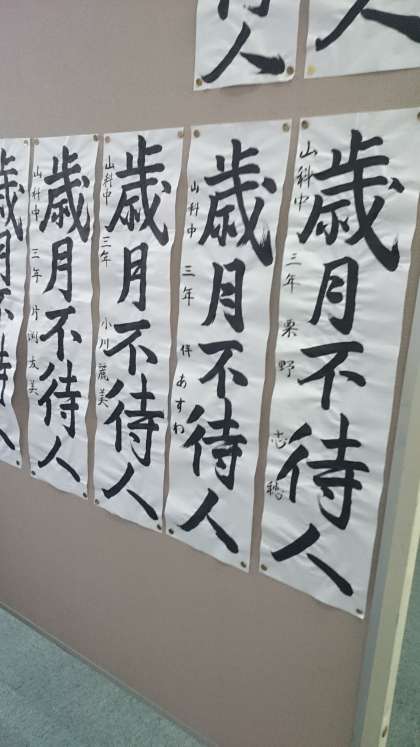 人
人
歳月不待人
山科中 三年 栗野 志穂
歳月不待人
山科中 三年 伴 あすわ
歳月不待人
山科中 三年 小川 麗美
歳月不待人
山科中 三年 片渕 友美
歳月不待人